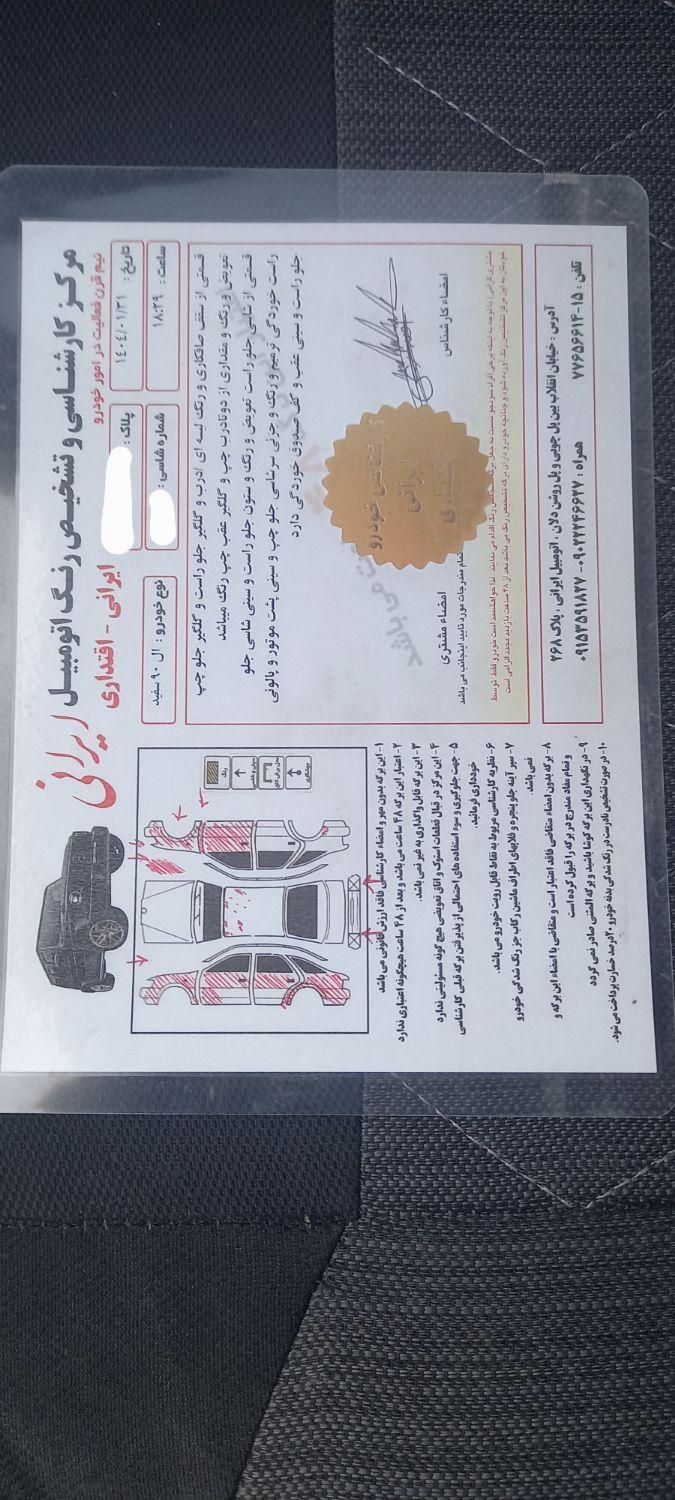 مرکز کارشناسی و تشخیص رنگ اتومبیل ایرانی
نیم قرن فعالیت در امور خودرو
ایرانی - اقتداری
تاریخ : ۱۴۰۴/۰۱/۳۱
پلاک :
ساعت : ۱۸:۲۹
شماره شاسی :
نوع خودرو : ال ۹۰ سفید
قسمتی از سقف صافکاری و رنگ لیسه ای /درب و گلگیر جلو راست و گلگیر جلو چپ
تعویض و رنگ و مقداری از دوتادرب چپ و گلگیر عقب چپ رنگ میباشد
قسمتی از شاسی جلو راست تعویض و رنگ و ستون جلو راست و سینی شاسی جلو
راست خوردگی ترمیم و رنگ و جزئی سرشاسی جلو چپ و سینی پشت موتور و پالونی
جلو راست و سینی عقب و کف صندوق خوردگی دارد
امضاء کارشناس
امضاء مشتری
تمام مندرجات مورد تایید اینجانب می باشد
کارشناسی خودرو
ایرانی
اقتداری
آدرس : خیابان انقلاب بین پل چوبی و پل روشن دلان ، اتومبیل ایرانی ، پلاک ۲۶۸
تلفن : ۱۵-۷۷۶۵۶۶۱۴
همراه : ۰۹۰۲۲۲۴۶۶۲۷ - ۰۹۱۵۳۵۹۱۸۲۷
رنگ
۱- این برگه بدون مهر و امضاء کارشناسی فاقد ارزش قانونی می باشد
۲- اعتبار این برگه ۴۸ ساعت می باشد و بعد از ۴۸ ساعت هیچگونه اعتباری ندارد
۳- این برگه قابل واگذاری به غیر نمی باشد.
۴- این مرکز در قبال قطعات استوک و اتاق تعویضی هیچ گونه مسئولیتی ندارد
۵- جهت جلوگیری و سوء استفاده های احتمالی از پذیرفتن برگه قبلی کارشناسی
خودداری فرمائید.
۶- نظریه کارشناسی مربوط به نقاط قابل رویت خودرو می باشد.
۷- سپر آینه جلو پنجره و قلابهای اطراف ماشین رکاب جز رنگ شدگی خودرو
نمی باشد.
۸- برگه بدون امضاء متقاضی فاقد اعتبار است و متقاضی با امضاء این برگه و
و تمام مفاد مندرج در برگه را قبول کرده است
۹- در نگهداری این برگه کوشا باشید و برگه المثنی صادر نمی گردد
۱۰- در صورت تشخیص نادرست در رنگ شدگی بدنه خودرو ۲۰درصد خسارت پرداخت می شود.